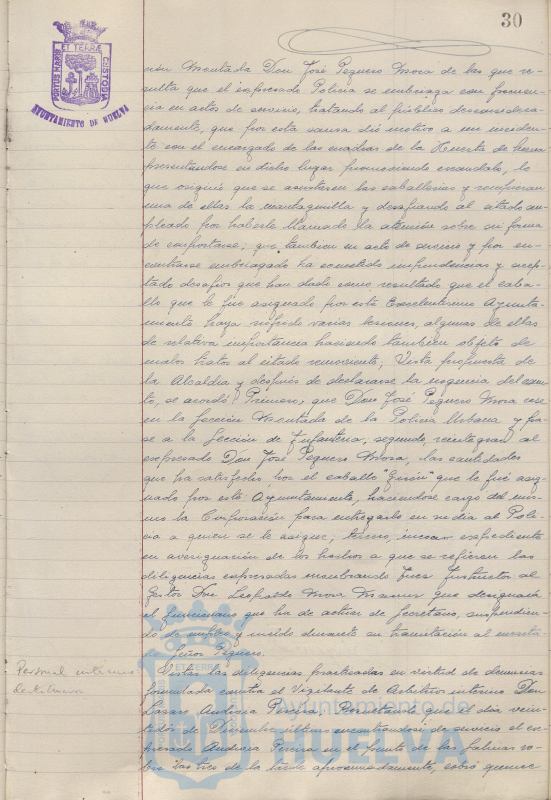 30
PORTUS MARIS ET TERRÆ CUSTODIA
AYUNTAMIENTO DE HUELVA
ción Montada Don José Peguero Mora de las que re-
sulta que el expresado Policia se embriaga con frecuen-
cia en actos de servicio, tratando al público desconsidera-
damente, que por esta causa dió motivo a un inciden-
te con el encargado de las cuadras de la Huerta de
presentandose en dicho lugar promoviendo escandalo, lo
que originó que se asustasen las caballerias y rompieran
una de ellas la y desafiando al citado em-
pleado por haberle llamado la atención sobre su forma
de comportarse; que tambien en acto de servicio y por en-
contrarse embriagado ha cometido imprudencias y acep-
tado desafios que han dado como resultado que el caba-
llo que le fue asignado por este Excelentisimo Ayunta-
miento haya sufrido varias lesiones, algunas de ellas
de relativa importancia haciendo tambien objeto de
malos tratos al citado semoviente; Vista propuesta de
la Alcaldia y después de declararse la urgencia del asun-
to, se acordó: Primero; que Don José Peguero Mora cese
en la Sección Montada de la Policia Urbana y pa-
se a la Sección de Infanteria; segundo, reintegrar al
expresado Don José Peguero Mora, las cantidades
que ha satisfecho por el caballo que le fué asig-
nado por este Ayuntamiento, haciendose cargo del mis-
mo la Corporación para entregarlo en su dia al Poli-
cia a quien se le asigne; tercero, incoar expediente
en averiguación de los hechos a que se refieren las
diligencias expresadas nombrando Juez Instructor al
Gestor Don Leopoldo Mora que designará
el funcionario que ha de actuar de Secretario, suspendien-
do de empleo y sueldo durante su tramitación al
Señor Peguero.
Personal interino
de Arbitrios
Vistas las diligencias practicadas en virtud de denuncias
formulada contra el Vigilante de Arbitrios interino Don
Lazaro Pereira; Resultando que el dia vein-
tidos de Diciembre último encontrandose de servicio el ex-
presado Pereira en el fielato de las sobre
las tres de la tarde aproximadamente, cobró quince
ET TERRÆ
Ayuntamiento de
HUELVA